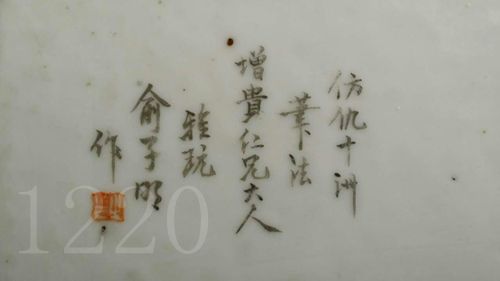 仿仇十洲
筆法
增貴仁兄大人
雅玩
俞子明
作
1220